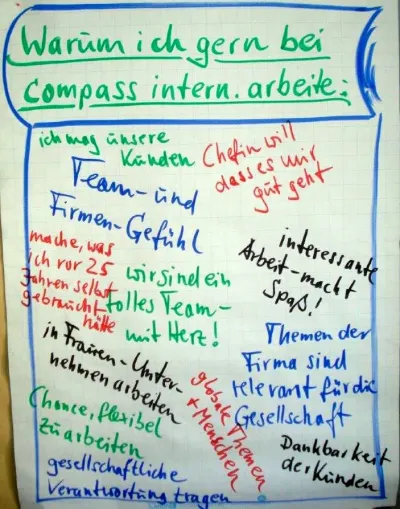 Warum ich gern bei
compass intern. arbeite:
ich mag unsere
Kunden
Chefin will
dass es mir
gut geht
Team- und
Firmen-Gefühl
interessante
Arbeit-macht
Spaß!
mache, was
ich vor 25
Jahren selbst
gebraucht
hätte
wir sind ein
tolles Team-
mit Herz!
in Frauen-Unter-
nehmen arbeiten
Themen der
Firma sind
relevant für die
Gesellschaft
globale Themen
+ Menschen
Chance, flexibel
zu arbeiten
Dankbarkeit
der Kunden
gesellschaftliche
Verantwortung tragen